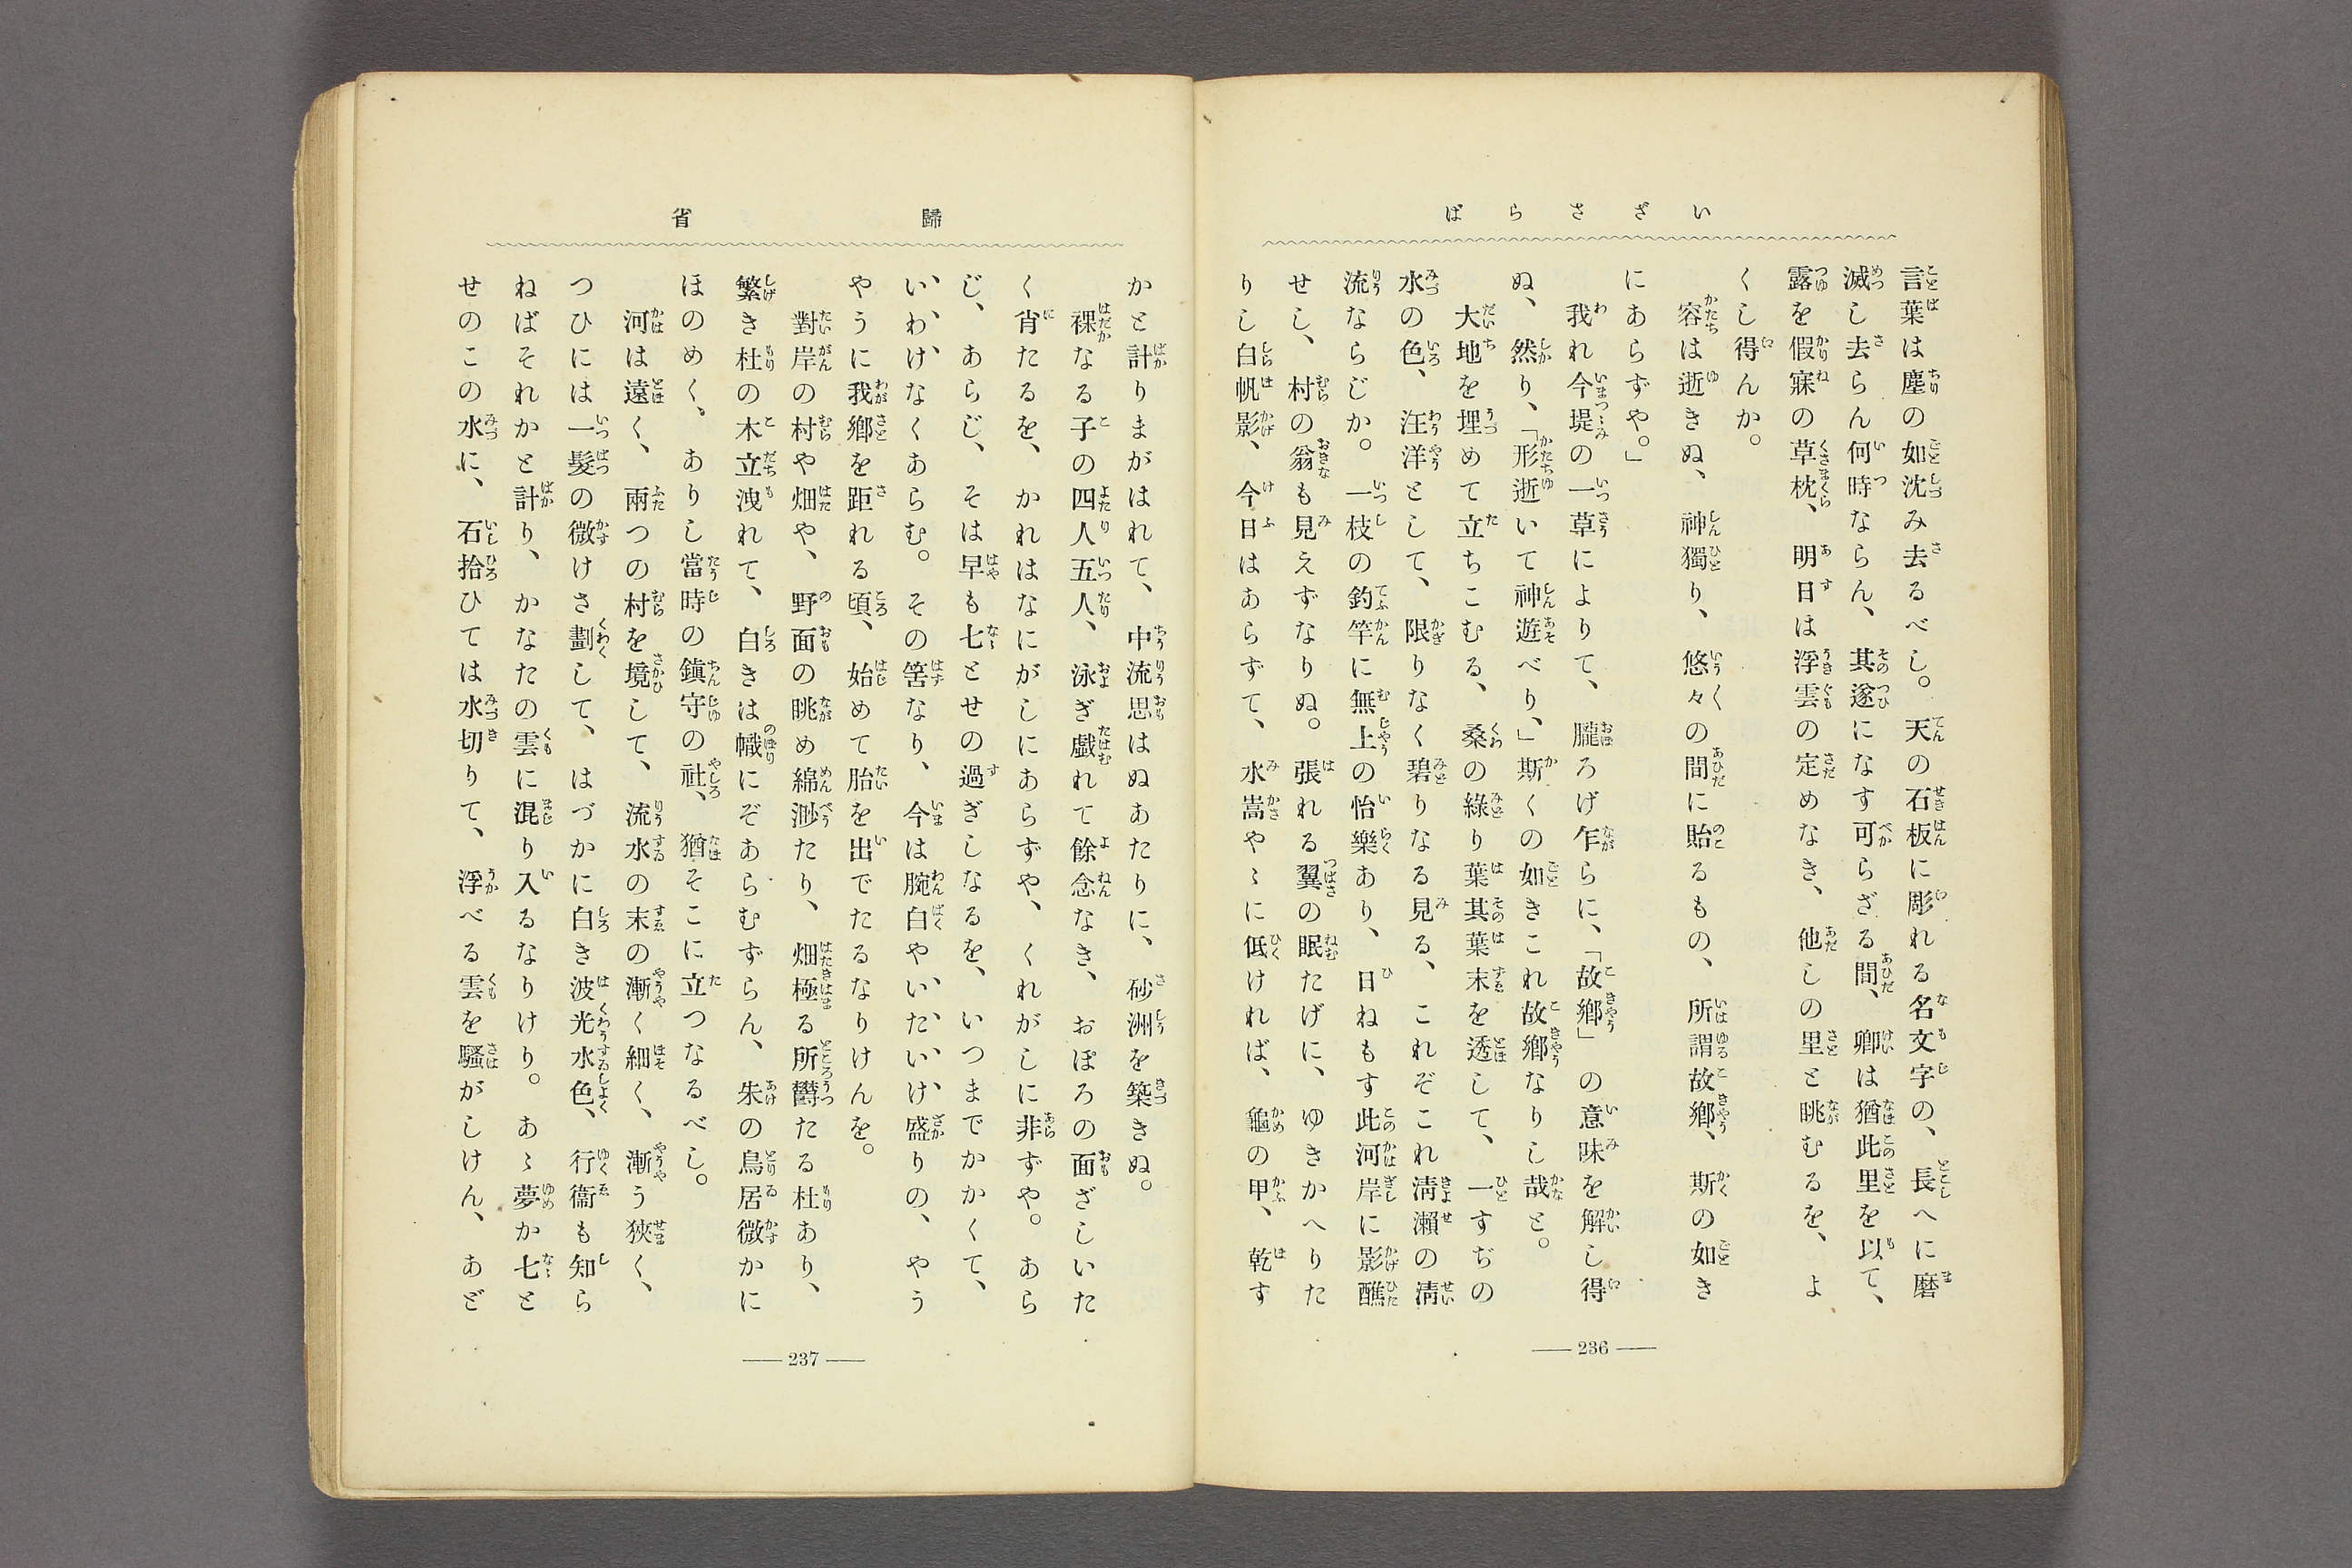 いざさらば
言葉は塵の如沈み去るべし。天の石板に彫れる名文字の、長へに磨
滅し去らん何時ならん、其遂になす可らざる間、卿は猶此里を以て、
露を假寐の草枕、明日は浮雲の定めなき、他しの里と眺むるを、よ
くし得んか。
容は逝きぬ、神獨り、悠々の間に貽るもの、所謂故鄕、斯の如き
にあらずや。」
我れ今堤の一草によりて、朧ろげ乍らに、「故鄕」の意味を解し得
ぬ、然り、「形逝いて神遊べり、」斯くの如きこれ故鄕なりし哉と。
大地を埋めて立ちこむる、桑の綠り葉其葉末を透して、一すぢの
水の色、汪洋として、限りなく碧りなる見る、これぞこれ淸瀨の淸
流ならじか。一枝の釣竿に無上の怡樂あり、日ねもす此河岸に影醮
せし、村の翁も見えずなりぬ。張れる翼の眠たげに、ゆきかへりた
りし白帆影、今日はあらずて、水嵩やゝに低ければ、龜の甲、乾す
236
歸省
かと計りまがはれて、中流思はぬあたりに、砂洲を築きぬ。
裸なる子の四人五人、泳ぎ戲れて餘念なき、おぼろの面ざしいた
く肖たるを、かれはなにがしにあらずや、くれがしに非ずや。あら
じ、あらじ、そは早も七とせの過ぎしなるを、いつまでかかくて、
い、わ、けなくあらむ。その筈なり、今は腕白や、い、た、い、け、盛りの、やう
やうに我鄕を距れる頃、始めて胎を出でたるなりけんを。
對岸の村や畑や、野面の眺め綿渺たり、畑極る所鬱たる杜あり、
繁き杜の木立洩れて、白きは幟にぞあらむずらん、朱の鳥居微かに
ほのめく、ありし當時の鎭守の社、猶そこに立つなるべし。
河は遠く、兩つの村を境して、流水の末の漸く細く、漸う狹く、
つひには一髮の微けさ劃して、はづかに白き波光水色、行衞も知ら
ねばそれかと計り、かなたの雲に混り入るなりけり。あゝ夢か七と
せのこの水に、石拾ひては水切りて、浮べる雲を騷がしけん、あど
237